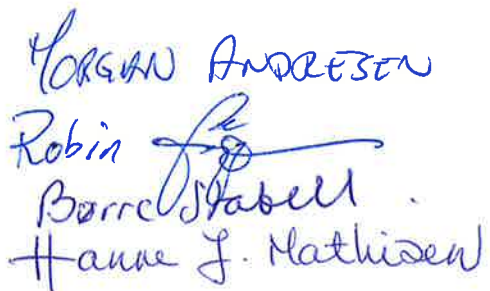 MORGAN ANDRESEN
Robin
Børre Stabell.
Hanne J. Mathisen